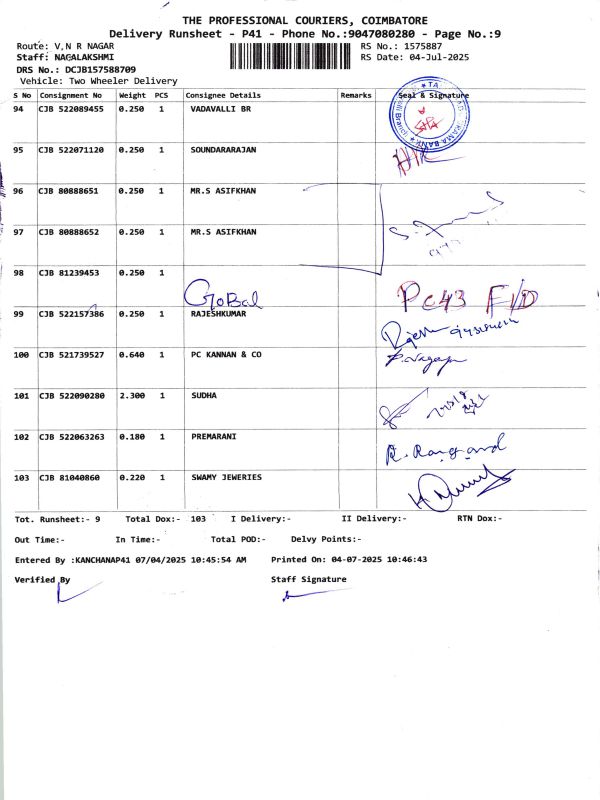 THE PROFESSIONAL COURIERS, COIMBATORE
Delivery Runsheet - P41 - Phone No.:9047080280 - Page No.:9
Route: V,N R NAGAR RS No.: 1575887
Staff: NAGALAKSHMI RS Date: 04-Jul-2025
DRS No.: DCJB157588709
Vehicle: Two Wheeler Delivery
S No Consignment No Weight PCS Consignee Details Remarks Seal & Signature
94 CJB 522089455 0.250 1 VADAVALLI BR
95 CJB 522071120 0.250 1 SOUNDARARAJAN
96 CJB 80888651 0.250 1 MR.S ASIFKHAN
97 CJB 80888652 0.250 1 MR.S ASIFKHAN
98 CJB 81239453 0.250 1
Global PC43 F/D
99 CJB 522157386 0.250 1 RAJESHKUMAR
100 CJB 521739527 0.640 1 PC KANNAN & CO
101 CJB 522090280 2.300 1 SUDHA
102 CJB 522063263 0.180 1 PREMARANI
103 CJB 81040860 0.220 1 SWAMY JEWERIES
Tot. Runsheet:- 9 Total Dox:- 103 I Delivery:- II Delivery:- RTN Dox:-
Out Time:- In Time:- Total POD:- Delvy Points:-
Entered By :KANCHANAP41 07/04/2025 10:45:54 AM Printed On: 04-07-2025 10:46:43
Verified By Staff Signature